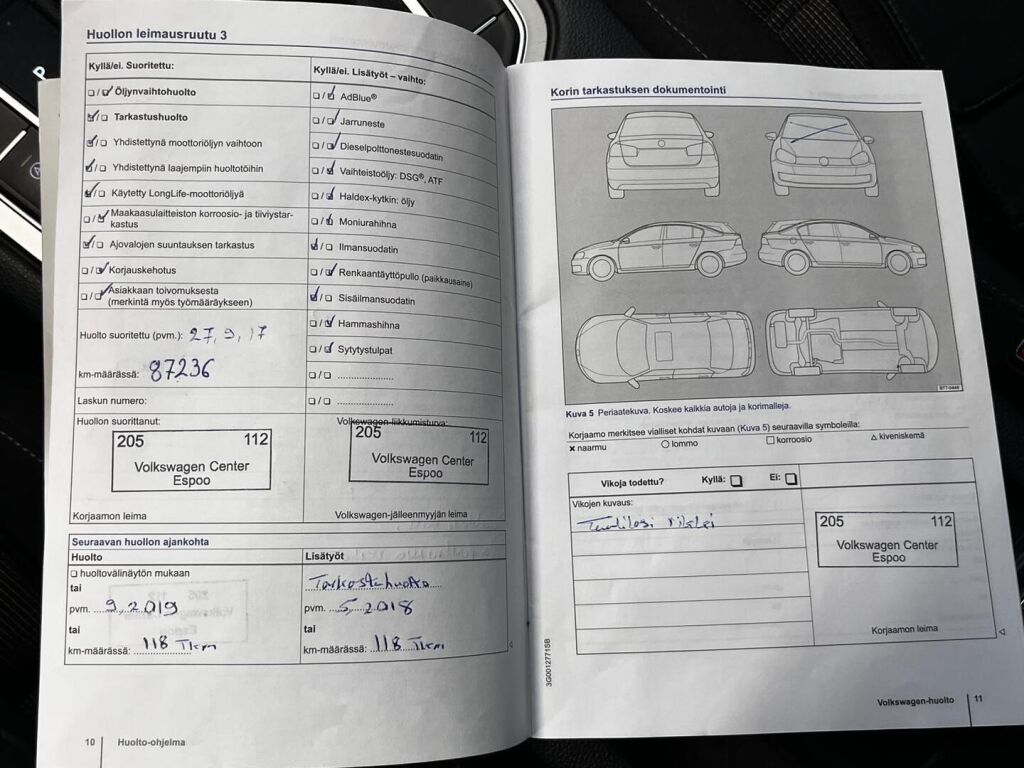 P
Huollon leimausruutu 3
Kyllä/ei. Suoritettu:
Öljynvaihtohuolto
Tarkastushuolto
Yhdistettynä moottoriöljyn vaihtoon
Yhdistettynä laajempiin huoltotöihin
Käytetty LongLife-moottoriöljyä
Maakaasulaitteiston korroosio- ja tiiviystar-
kastus
Ajovalojen suuntauksen tarkastus
Korjauskehotus
Asiakkaan toivomuksesta
(merkintä myös työmääräykseen)
Huolto suoritettu (pvm.): 27, 9, 17
km-määrässä: 87236
Laskun numero:
Huollon suorittanut:
205 112
Volkswagen Center
Espoo
Korjaamon leima
Kyllä/ei. Lisätyöt – vaihto:
AdBlue®
Jarruneste
Dieselpolttonestesuodatin
Vaihteistoöljy: DSG®, ATF
Haldex-kytkin: öljy
Moniurahihna
Ilmansuodatin
Renkaantäyttöpullo (paikkausaine)
Sisäilmansuodatin
Hammashihna
Sytytystulpat
Volkswagen-liikkumisturva:
205 112
Volkswagen Center
Espoo
Volkswagen-jälleenmyyjän leima
Seuraavan huollon ajankohta
Huolto
huoltovälinäytön mukaan
tai
pvm. 9, 2019
tai
km-määrässä: 118 Tkm
Lisätyöt
Tarkastehuolto
pvm. 5, 2018
tai
km-määrässä: 118 Tkm
10 Huolto-ohjelma
Korin tarkastuksen dokumentointi
BTT-0446
Kuva 5 Periaatekuva. Koskee kaikkia autoja ja korimalleja.
Korjaamo merkitsee vialliset kohdat kuvaan (Kuva 5) seuraavilla symboleilla:
naarmu lommo korroosio kiveniskemä
Vikoja todettu? Kyllä: Ei:
Vikojen kuvaus:
205 112
Volkswagen Center
Espoo
Korjaamon leima
3G0012771SB
Volkswagen-huolto 11